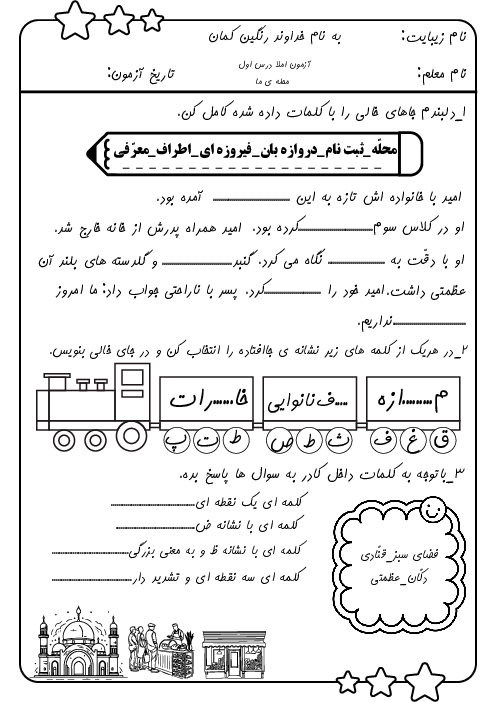 نام زیبایت:
به نام خداوند رنگین کمان
نام معلم:
آزمون املا درس اول
محله ی ما
تاریخ آزمون:
۱_دلبندم جاهای خالی را با کلمات داده شده کامل کن.
محلّه_ثبت نام_دروازه بان_فیروزه ای_اطراف_معرّفی
امیر با خانواده اش تازه به این ........................ آمده بود.
او در کلاس سوم........................کرده بود. امیر همراه پدرش از خانه خارج شد.
او با دقّت به .................. نگاه می کرد. گنبد........................ و گلدسته های بلند آن
عظمتی داشت.امیر خود را ..................کرد. پسر با ناراحتی جواب داد: ما امروز
........................نداریم.
۲_در هریک از کلمه های زیر نشانه ی جاافتاده را انتخاب کن و در جای خالی بنویس.
م.........ازه
.....ف نانوایی
خا......رات
ق غ ف
ث ط ص
ط ت پ
۳_باتوجه به کلمات داخل کادر به سوال ها پاسخ بده.
کلمه ای یک نقطه ای........................
کلمه ای با نشانه ض........................
کلمه ای با نشانه ظ و به معنی بزرگی........................
کلمه ای سه نقطه ای و تشدید دار........................
فضای سبز_قنّادی
دکّان_عظمتی